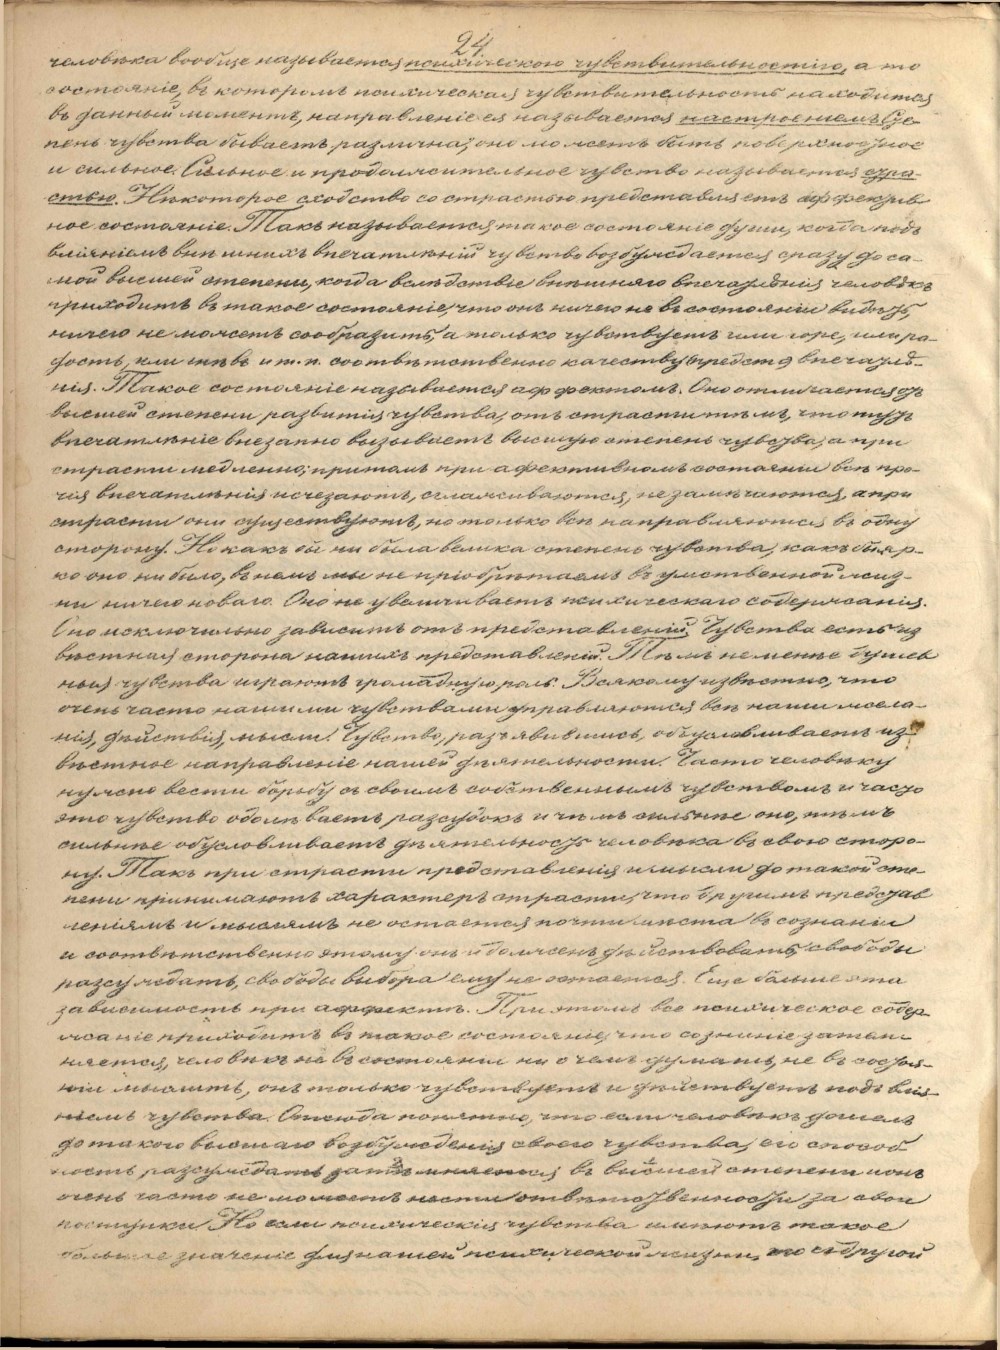 24
человѣка вообще называется психическою чувствительностію, а то
состояніе, въ которомъ психическая чувствительность находится
въ данный моментъ, направленіе ея называется настроеніемъ. Сте-
пень чувства бываетъ различна; оно можетъ быть поверхностное
и сильное. Сильное и продолжительное чувство называется стра-
стью. Нѣкоторое сходство со страстью представляетъ аффектив
ное состояніе. Такъ называется такое состояніе души, когда подъ
вліяніемъ внѣшнихъ впечатлѣній чувство возбуждается сразу до са-
мой высшей степени, когда вслѣдствіе внѣшняго впечатлѣнія человѣкъ
приходитъ въ такое состояніе, что онъ ничего не въ состояніи видѣть,
ничего не можетъ сообразить, а только чувствуетъ или горе, или ра-
дость, или гнѣвъ и т. п. соотвѣтственно качеству впечатлѣ-
нія. Такое состояніе называется аффектомъ. Оно отличается отъ
высшей степени развитія чувства, отъ страсти тѣмъ, что тутъ
впечатлѣніе внезапно вызываетъ высшую степень чувства, а при
страсти медленно; притомъ при афективномъ состояніи всѣ про-
чія впечатлѣнія исчезаютъ, сглаживаются, не замѣчаются, а при
страсти они существуютъ, но только всѣ направляются въ одну
сторону. Но какъ бы ни была велика степень чувства, какъ бы яр-
ко оно ни было, въ немъ мы не пріобрѣтаемъ въ умственной жиз-
ни ничего новаго. Оно не увеличиваетъ психическаго содержанія.
Оно исключильно зависитъ отъ представленій. Чувства есть из
вѣстная сторона нашихъ представленій. Тѣмъ не менѣе душев
ныя чувства играютъ громадную роль. Всякому извѣстно, что
очень часто нашими чувствами управляются всѣ наши жела-
нія, дѣйствія, мысли. Чувство, разъ явившись, обусловливаетъ из-
вѣстное направленіе нашей дѣятельности. Часто человѣку
нужно вести борьбу съ своимъ собственнымъ чувствомъ и часто
это чувство одолѣваетъ разсудокъ и чѣмъ сильнѣе оно, тѣмъ
сильнѣе обусловливаетъ дѣятельность человѣка въ свою сторо-
ну. Такъ при страсти представленія и мысли до такой сте
пени принимаютъ характеръ страсти, что другимъ представ
леніямъ и мыслямъ не остается почти мѣста въ сознаніи
и соотвѣтственно этому онъ и долженъ дѣйствовать, свободы
разсуждать, свободы выбора ему не остается. Еще больше эта
зависимость при аффектѣ. При этомъ все психическое содер-
жаніе приходитъ въ такое состояніе, что сознаніе затем
няется, человѣкъ не въ состояніи ни о чемъ думать, не въ состоя-
ніи мыслить, онъ только чувствуетъ и дѣйствуетъ подъ влія-
ніемъ чувства. Отсюда понятно, что если человѣкъ дошелъ
до такого высшаго возбужденія своего чувства, его способ
ность разсуждать затемняется въ высшей степени и онъ
очень часто не можетъ нести отвѣтственности за свои
поступки. Но если психическія чувства имѣютъ такое
большое значеніе для нашей психической жизни, то съ другой